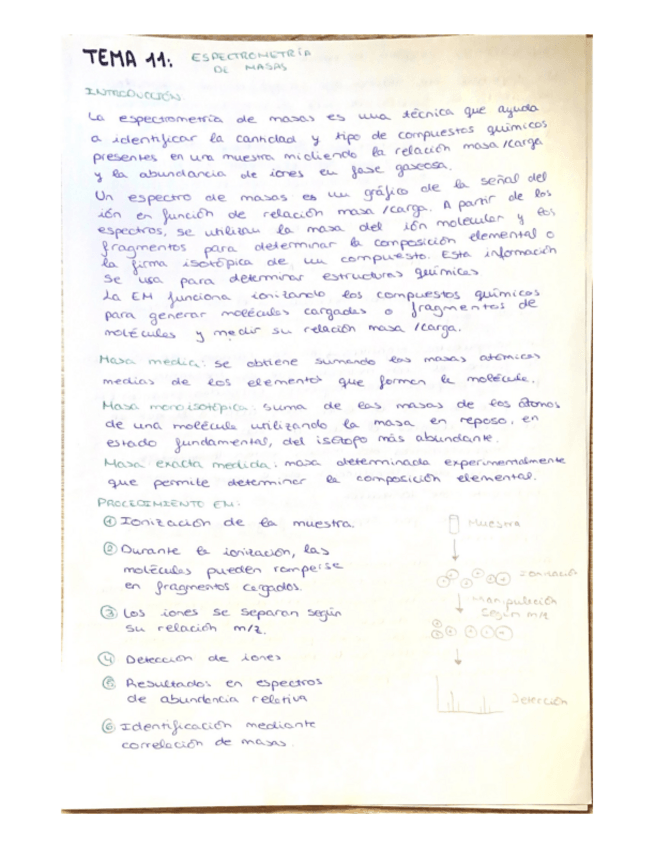 TEMA 11: ESPECTROMETRÍA
DE MASAS
INTRODUCCIÓN:
La espectrometría de masas es una técnica que ayuda
a identificar la cantidad y tipo de compuestos químicos
presentes en una muestra midiendo la relación masa/carga
y la abundancia de iones en fase gaseosa.
Un espectro de masas es un gráfico de la señal del
ión en función de relación masa/carga. A partir de los
espectros, se utilizan la masa del ión molecular y los
fragmentos para determinar la composición elemental o
la firma isotópica de un compuesto. Esta información
se usa para determinar estructuras químicas
La EM funciona ionizando los compuestos químicos
para generar moléculas cargadas o fragmentos de
moléculas y medir su relación masa/carga.
Masa media: se obtiene sumando las masas atómicas
medias de los elementos que forman la molécula.
Masa monoisotópica: suma de las masas de los átomos
de una molécula utilizando la masa en reposo, en
estado fundamental, del isótopo más abundante.
Masa exacta medida: masa determinada experimentalmente
que permite determinar la composición elemental.
PROCEDIMIENTO EM:
① Ionización de la muestra.
② Durante la ionización, las
moléculas pueden romperse
en fragmentos cargados.
③ Los iones se separan según
su relación m/z.
④ Detección de iones
⑤ Resultados en espectros
de abundancia relativa
⑥ Identificación mediante
correlación de masas.
Muestra
Ionización
Manipulación
según m/z
Detección